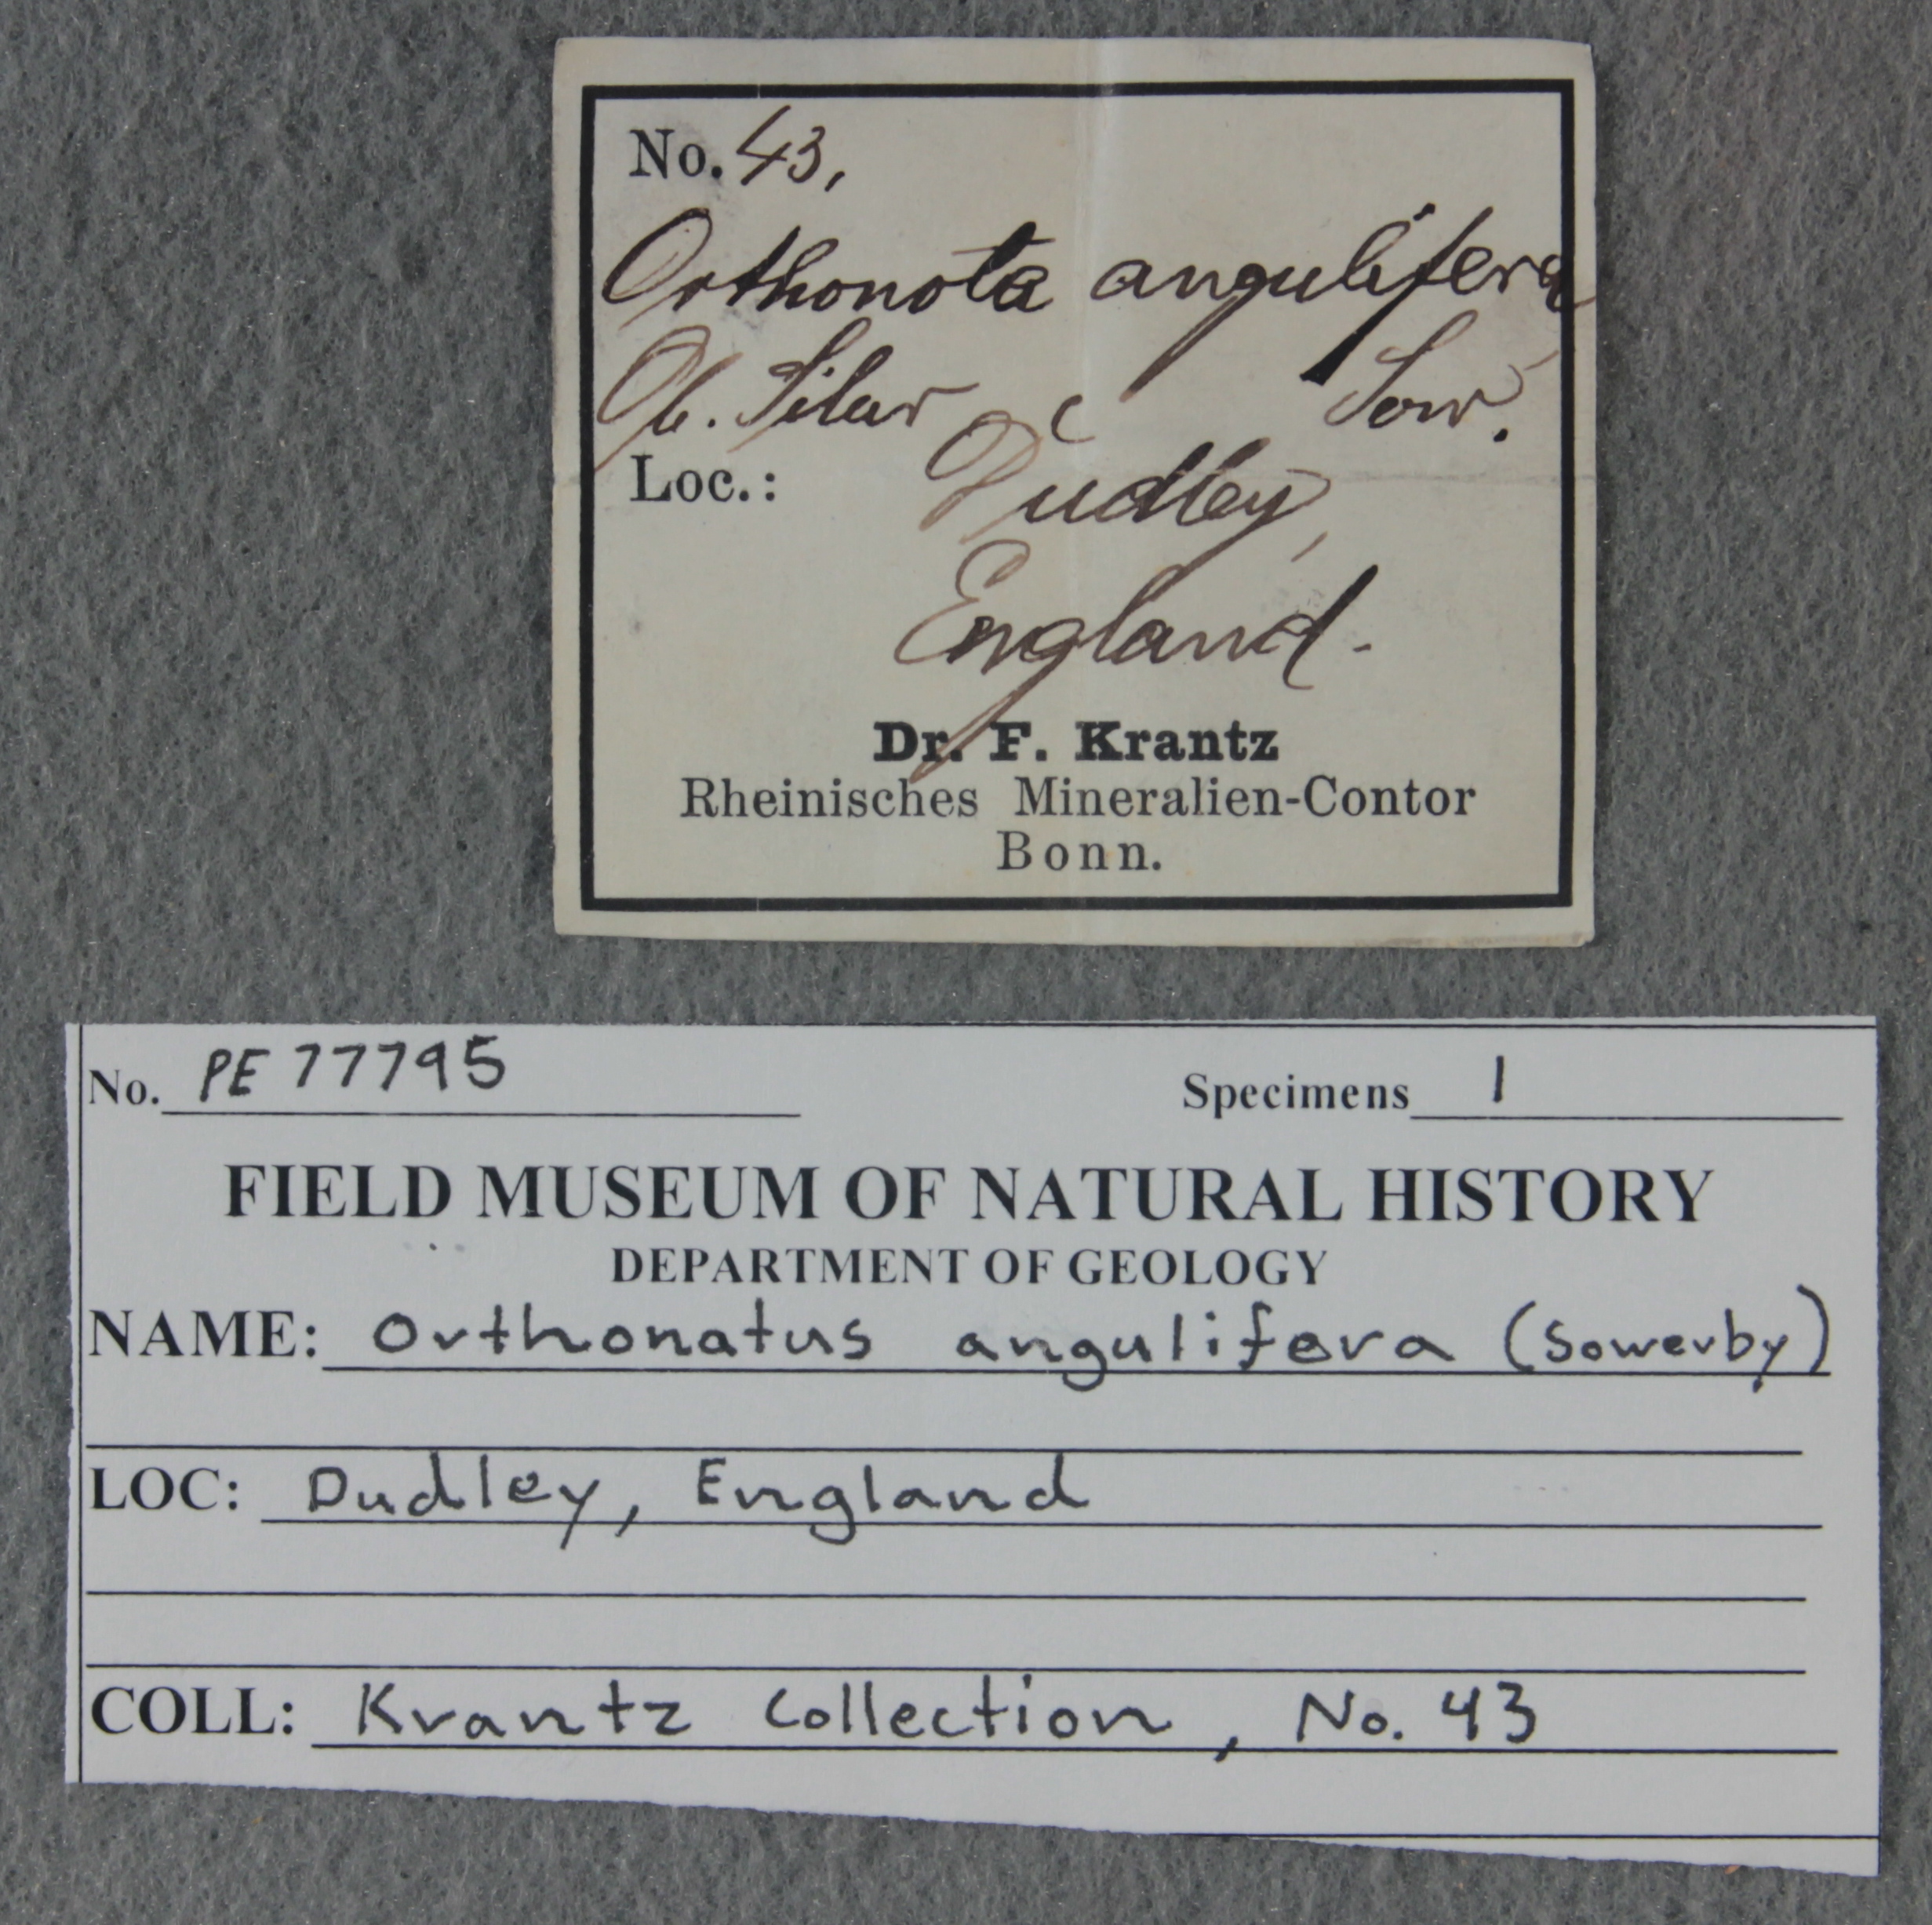 No. 43,
Orthonota angulifera
Ob. Silur Sow.
Loc.: Dudley,
England.
Dr. F. Krantz
Rheinisches Mineralien-Contor
Bonn.
No. PE 77795 Specimens 1
FIELD MUSEUM OF NATURAL HISTORY
DEPARTMENT OF GEOLOGY
NAME: Orthonatus angulifera (Sowerby)
LOC: Dudley, England
COLL: Krantz Collection, No. 43